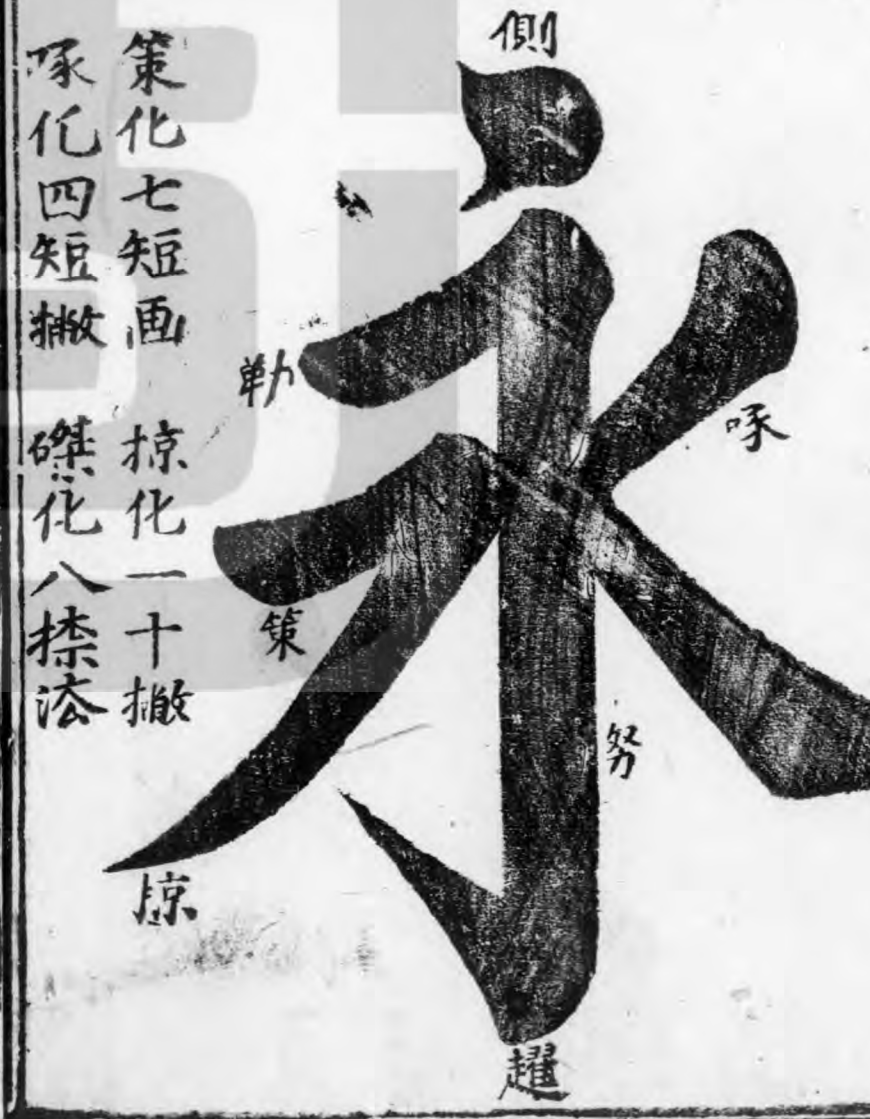 側
永
勒
啄
策
努
掠
趯
策化七短画 掠化一十撇
啄化四短撇 磔化八捺法